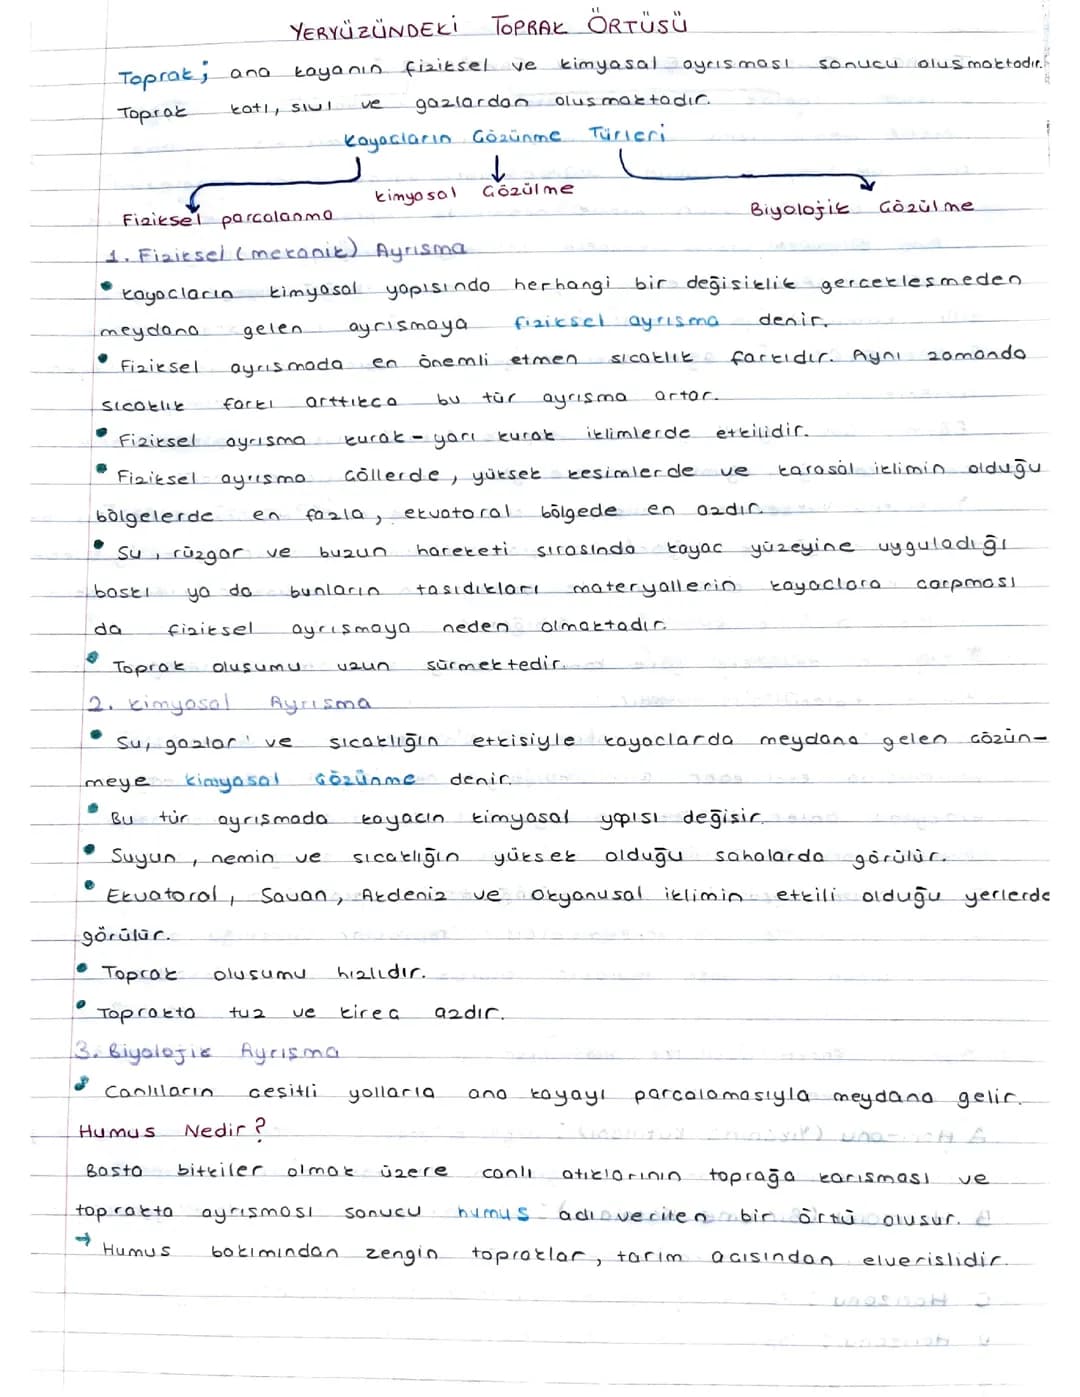 YERYÜZÜNDEKİ TOPRAK ÖRTÜSÜ
Toprak; ana kayanın fiziksel ve kimyasal ayrısması sonucu olusmaktadır.
Toprak katı, sıvı ve gazlardan olusmaktadır.
Kayacların Cözünme Türleri
Fiziksel parcalanma
Kimyasal Cözülme
Biyolojik Cözülme
1. Fiziksel (mekanik) Ayrısma
• Kayacların kimyasal yapısında herhangi bir değisiklik gerceklesmeden
meydana gelen ayrısmaya fiziksel ayrısma denir.
• Fiziksel ayrısmada en önemli etmen sıcaklık farkıdır. Aynı zamanda
sıcaklık farkı arttıkca bu tür ayrısma artar.
• Fiziksel ayrısma kurak-yarı kurak iklimlerde etkilidir.
• Fiziksel ayrısma Cöllerde, yüksek kesimlerde ve karasal iklimin olduğu
bölgelerde en fazla, ekvatoral bölgede en azdır.
• Su, rüzgar ve buzun hareketi sırasında kayac yüzeyine uyguladığı
baskı ya da bunların tasıdıkları materyallerin kayaclara carpması
da fiziksel ayrısmaya neden olmaktadır.
• Toprak olusumu uzun sürmektedir.
2. Kimyasal Ayrısma
• Su, gazlar ve sıcaklığın etkisiyle kayaclarda meydana gelen cözün-
meye kimyasal Cözünme denir.
• Bu tür ayrısmada kayacın kimyasal yapısı değisir.
• Suyun, nemin ve sıcaklığın yüksek olduğu sahalarda görülür.
• Ekvatoral, Savan, Akdeniz ve Okyanusal iklimin etkili olduğu yerlerde
görülür.
• Toprak olusumu hızlıdır.
• Toprakta tuz ve kirec azdır.
3. Biyolojik Ayrısma
• Canlıların cesitli yollarla ana kayayı parcalamasıyla meydana gelir.
Humus Nedir?
Basta bitkiler olmak üzere canlı atıklarının toprağa karısması ve
toprakta ayrısması sonucu humus adı verilen bir örtü olusur.
→ Humus bakımından zengin topraklar, tarım acısından elverislidir.